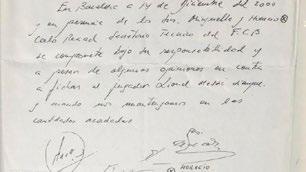 En Barcelona a 14 de Diciembre del 2000
y en presencia de los Srs. Minguella y Horacio
Carlos Rexach Secretario Técnico del F.C.B
se compromete bajo su responsabilidad y
a pesar de algunas opiniones en contra
a fichar al jugador Lionel Messi siempre
y cuando nos mantengamos en las
cantidades acordadas
HORACIO